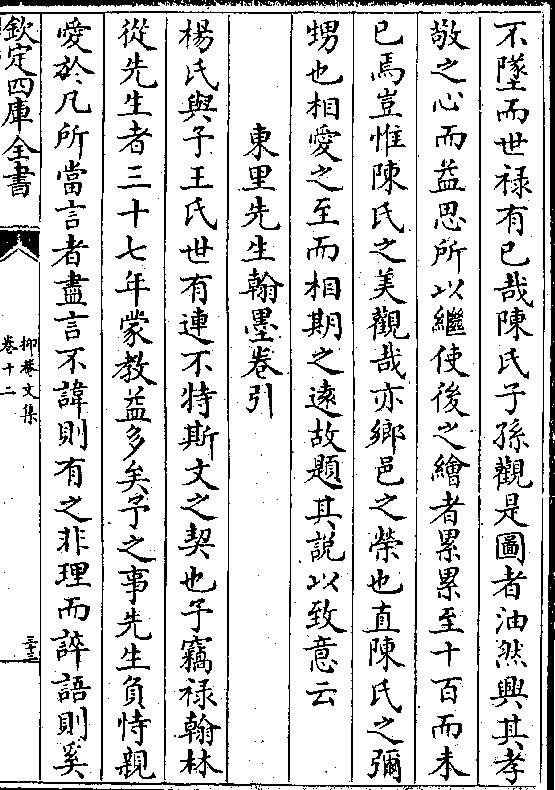 不墜而世禄有已哉陳氏子孫觀是圖者油然興其孝
敬之心而益思所以繼使後之繪者累累至十百而未
已焉豈惟陳氏之美觀哉亦鄉邑之榮也直陳氏之彌
甥也相愛之至而相期之遠故題其説以致意云
東里先生翰墨卷引
楊氏與予王氏世有連不特斯文之契也予竊禄翰林
從先生者三十七年蒙教益多矣予之事先生負恃親
愛於凡所當言者盡言不諱則有之非理而誶語則奚
欽定四庫全書
抑菴文集
卷十二
三十三